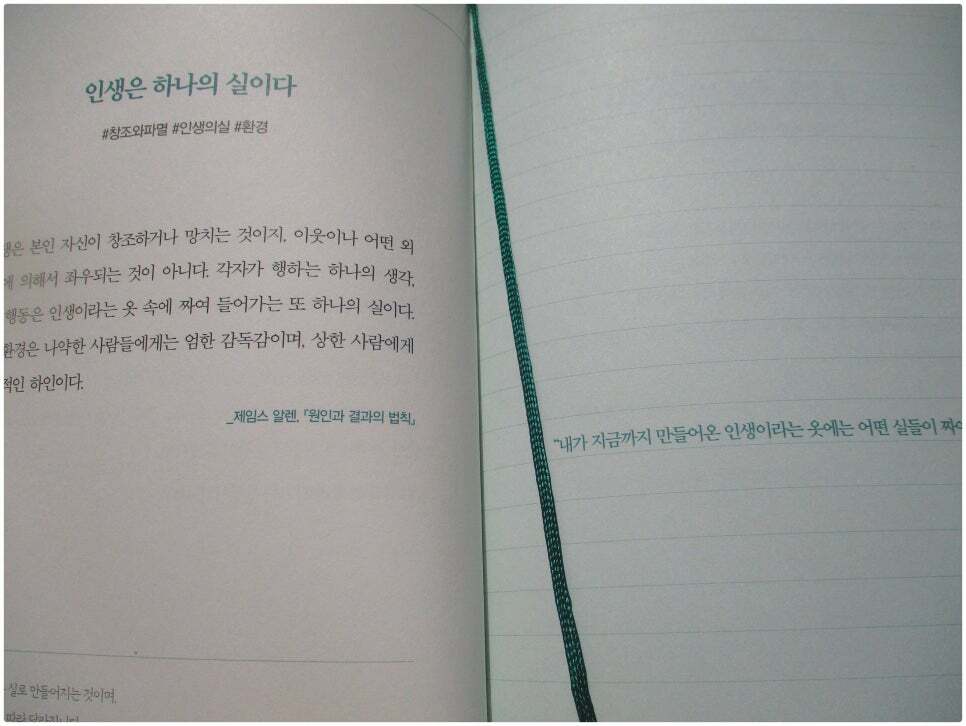 인생은 하나의 실이다
#창조와파멸 #인생의실 #환경
본인 자신이 창조하거나 망치는 것이지, 이웃이나 어떤 외
의해서 좌우되는 것이 아니다. 각자가 행하는 하나의 생각,
행동은 인생이라는 옷 속에 짜여 들어가는 또 하나의 실이다.
환경은 나약한 사람들에게는 엄한 감독감이며, 상한 사람에게
적인 하인이다.
_제임스 알렌, 「원인과 결과의 법칙」
실로 만들어지는 것이며,
"내가 지금까지 만들어온 인생이라는 옷에는 어떤 실들이